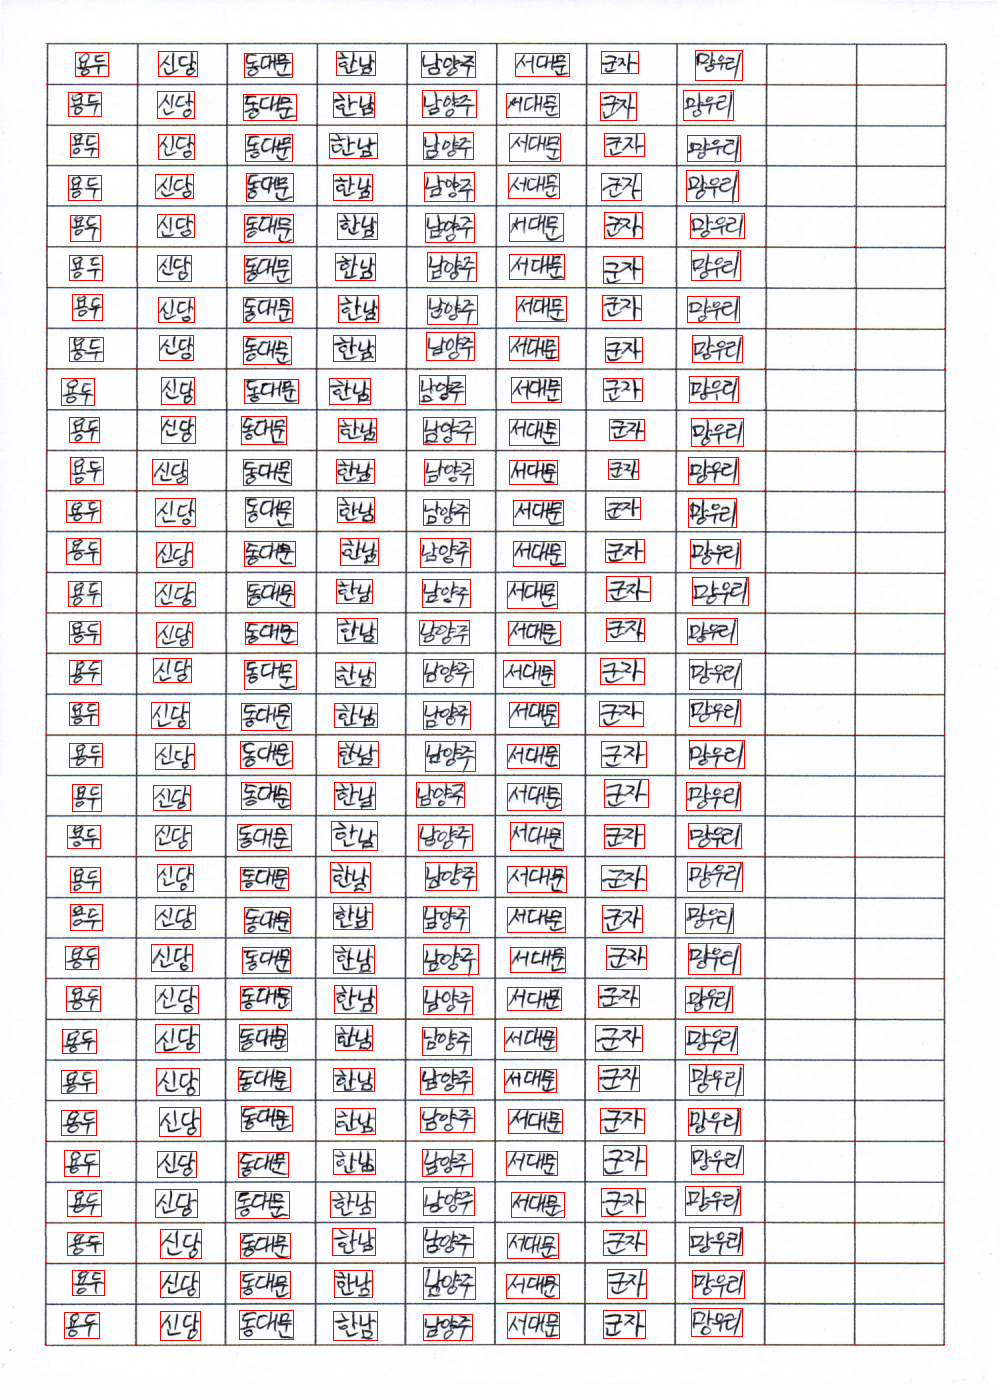 용두 신당 동대문 한남 남양주 서대문 군자 망우리
용두 신당 동대문 한남 남양주 서대문 군자 망우리
용두 신당 동대문 한남 남양주 서대문 군자 망우리
용두 신당 동대문 한남 남양주 서대문 군자 망우리
용두 신당 동대문 한남 남양주 서대문 군자 망우리
용두 신당 동대문 한남 남양주 서대문 군자 망우리
용두 신당 동대문 한남 남양주 서대문 군자 망우리
용두 신당 동대문 한남 남양주 서대문 군자 망우리
용두 신당 동대문 한남 남양주 서대문 군자 망우리
용두 신당 동대문 한남 남양주 서대문 군자 망우리
용두 신당 동대문 한남 남양주 서대문 군자 망우리
용두 신당 동대문 한남 남양주 서대문 군자 망우리
용두 신당 동대문 한남 남양주 서대문 군자 망우리
용두 신당 동대문 한남 남양주 서대문 군자 망우리
용두 신당 동대문 한남 남양주 서대문 군자 망우리
용두 신당 동대문 한남 남양주 서대문 군자 망우리
용두 신당 동대문 한남 남양주 서대문 군자 망우리
용두 신당 동대문 한남 남양주 서대문 군자 망우리
용두 신당 동대문 한남 남양주 서대문 군자 망우리
용두 신당 동대문 한남 남양주 서대문 군자 망우리
용두 신당 동대문 한남 남양주 서대문 군자 망우리
용두 신당 동대문 한남 남양주 서대문 군자 망우리
용두 신당 동대문 한남 남양주 서대문 군자 망우리
용두 신당 동대문 한남 남양주 서대문 군자 망우리
용두 신당 동대문 한남 남양주 서대문 군자 망우리
용두 신당 동대문 한남 남양주 서대문 군자 망우리
용두 신당 동대문 한남 남양주 서대문 군자 망우리
용두 신당 동대문 한남 남양주 서대문 군자 망우리
용두 신당 동대문 한남 남양주 서대문 군자 망우리
용두 신당 동대문 한남 남양주 서대문 군자 망우리
용두 신당 동대문 한남 남양주 서대문 군자 망우리
용두 신당 동대문 한남 남양주 서대문 군자 망우리